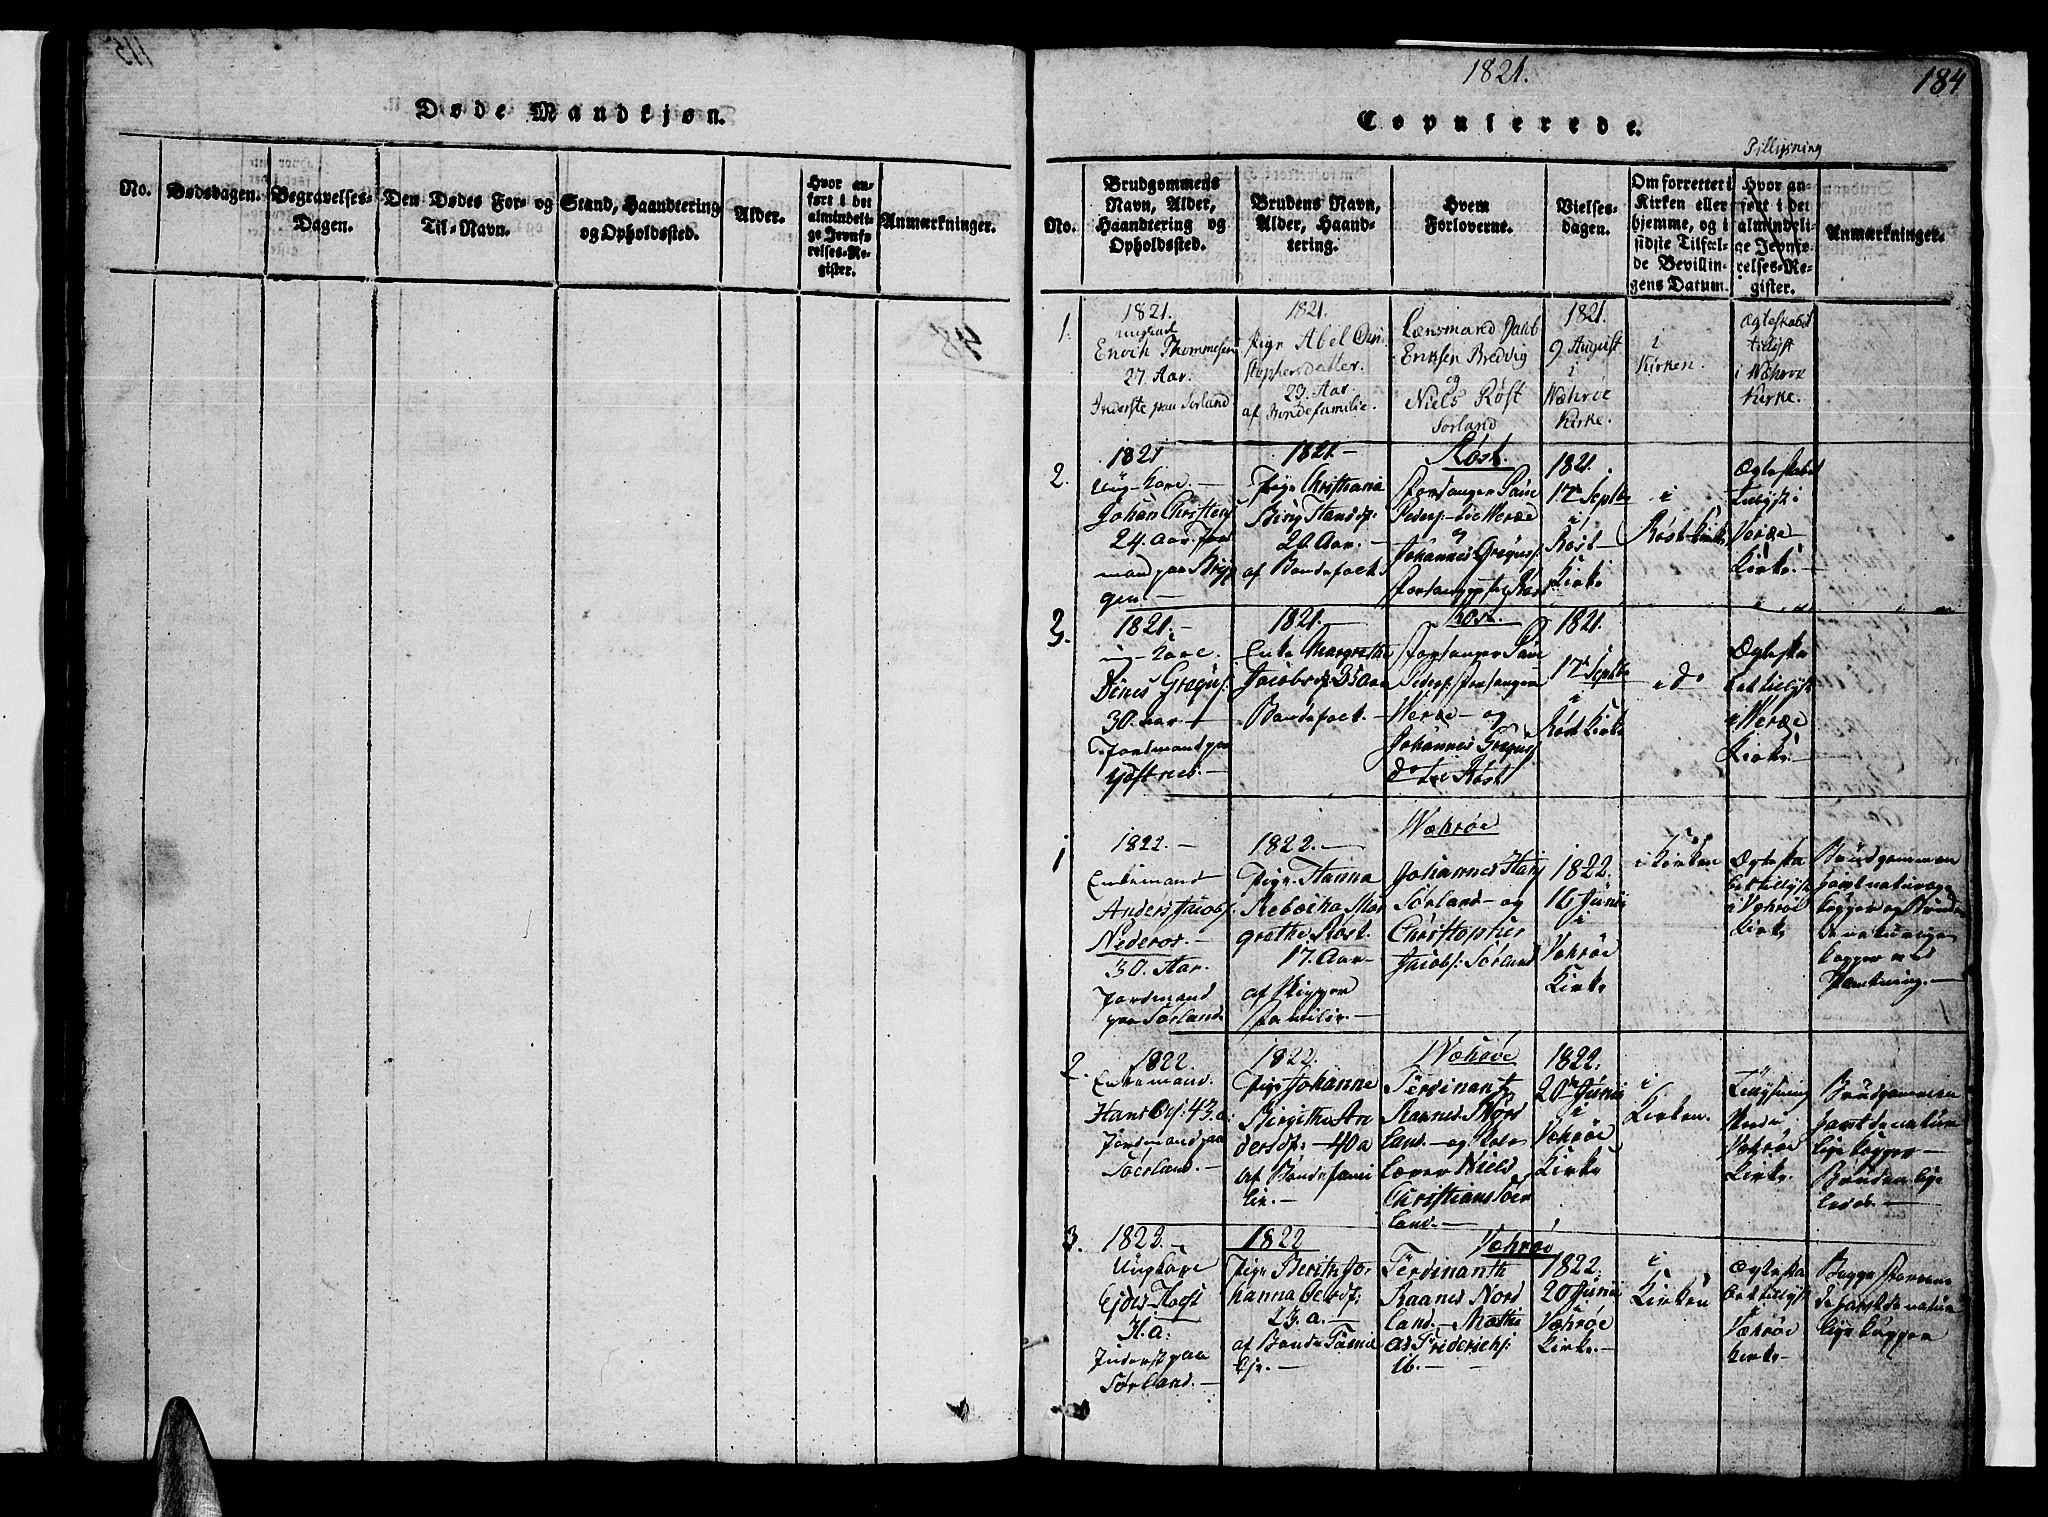 115
Døde Mandkjøn.
No.
Dødsdagen.
Begravelses-
Dagen.
Den Dødes For- og
Til-Navn.
Stand, Haandtering
og Opholdssted.
Alder.
Hvor an-
ført i det
almindeli-
ge Jevnfø-
relses-Re-
gister.
Anmærkninger.
1821.
184
Copulerede.
Tillysning
No.
Brudgommens
Navn, Alder,
Haandtering og
Opholdssted.
Brudens Navn,
Alder, Haand-
tering.
Hvem
Forloverne.
Vielses-
dagen.
Om forrettet i
Kirken eller
hjemme, og i
sidste Tilfæl-
de Bevillin-
gens Datum.
Hvor an-
ført i det
almindeli-
ge Jevnfø-
relses-Re-
gister.
Anmærkninger.
1.
1821.
Ungkarl
Thommesen
27 Aar.
Inderste paa Sørland
1821.
Pige Abel Chri
stophersdatter.
23. Aar
af Bondefamilie.
Lænsmand Jacob
Eriksen Bredvig
og
Niels Røst
Sørland
1821.
9 August
i
Wæhrøe
Kirke.
i
Kirken.
Ægteskabet
tillyst
i Wæhrøe
Kirke.
2.
1821
Ung-Karl.
Johan Christens:
24. Aar. Jord
mand paa
gen.
1821.
Pige Christiana
20. Aar.
af Bondefolk.
Røst.
Forsanger
Peders: til Werøe
og
Johannes Gregus:
Røst
1821.
17 Septbr
i
Røst
Kirke
i
Røst Kirke
Ægteskabet
tillyst i
Werøe
Kirke.
3.
1821.
ung-Karl.
Gregus:
30. Aar
Jordmand paa
1821.
Enke Margrethe
Jacobsd: 35 Aar
Bondefolk.
Røst.
Forsanger
Peders: Forsanger
Werøe og
Johannes Gregus:
do til Røst
1821.
17 Septbr
i
Røst Kirke
i do
Ægteska
bet tillyst
i Werøe
Kirke.
1
1822.
Enkemand
Anders Jacobs:
Nederos.
30. Aar.
Jordmand
paa Sørland.
1822.
Pige Hanna
Rebecka Mar
grethe Røst.
17. Aar
af Skipper
familie.
Wæhrøe
Johannes Hans:
Sørland og
Christopher
Jacobs: Sørland
1822.
16 Junii
i
Væhrøe
Kirke
i Kirken
Ægteska
bet tillyst
i Væhrøe
Kirke
Brudgommen
havt naturlige
kopper og Bruden
de naturlige
kopper
2.
1822.
Enkemand.
Hans Ols: 43. a:
Jordmand paa
Søerland.
1822.
Pige Johanne
Birgithe An
dersdr: 40 a
af Bondefami
lie.
Wæhrøe
Ferdinant
Raanes Nord
land. og
Niels
Christians: Søer
land.
1822.
20 Junii
i
Væhrøe
Kirke
i
Kirken.
Tillysning
Væhrøe
Kirke.
Brudgommen
havt de natur
lige kopper
Bruden lige
ledes.
3.
1822.
Ungkarl
31. a:
Inderst paa
Sørland.
1822
Pige Berith Jo
hanna
23. a.
af Bonde Fami
lie.
Væhrøe
Ferdinanth
Raanes Nord
land. Mathi
as Friderichs:
ib.
1822.
20 Junii
Væhrøe
Kirke.
i
Kirken
Ægteska
bet tillyst
Væhrøe
Kirke
Begge
de havt de natur
lige kopper